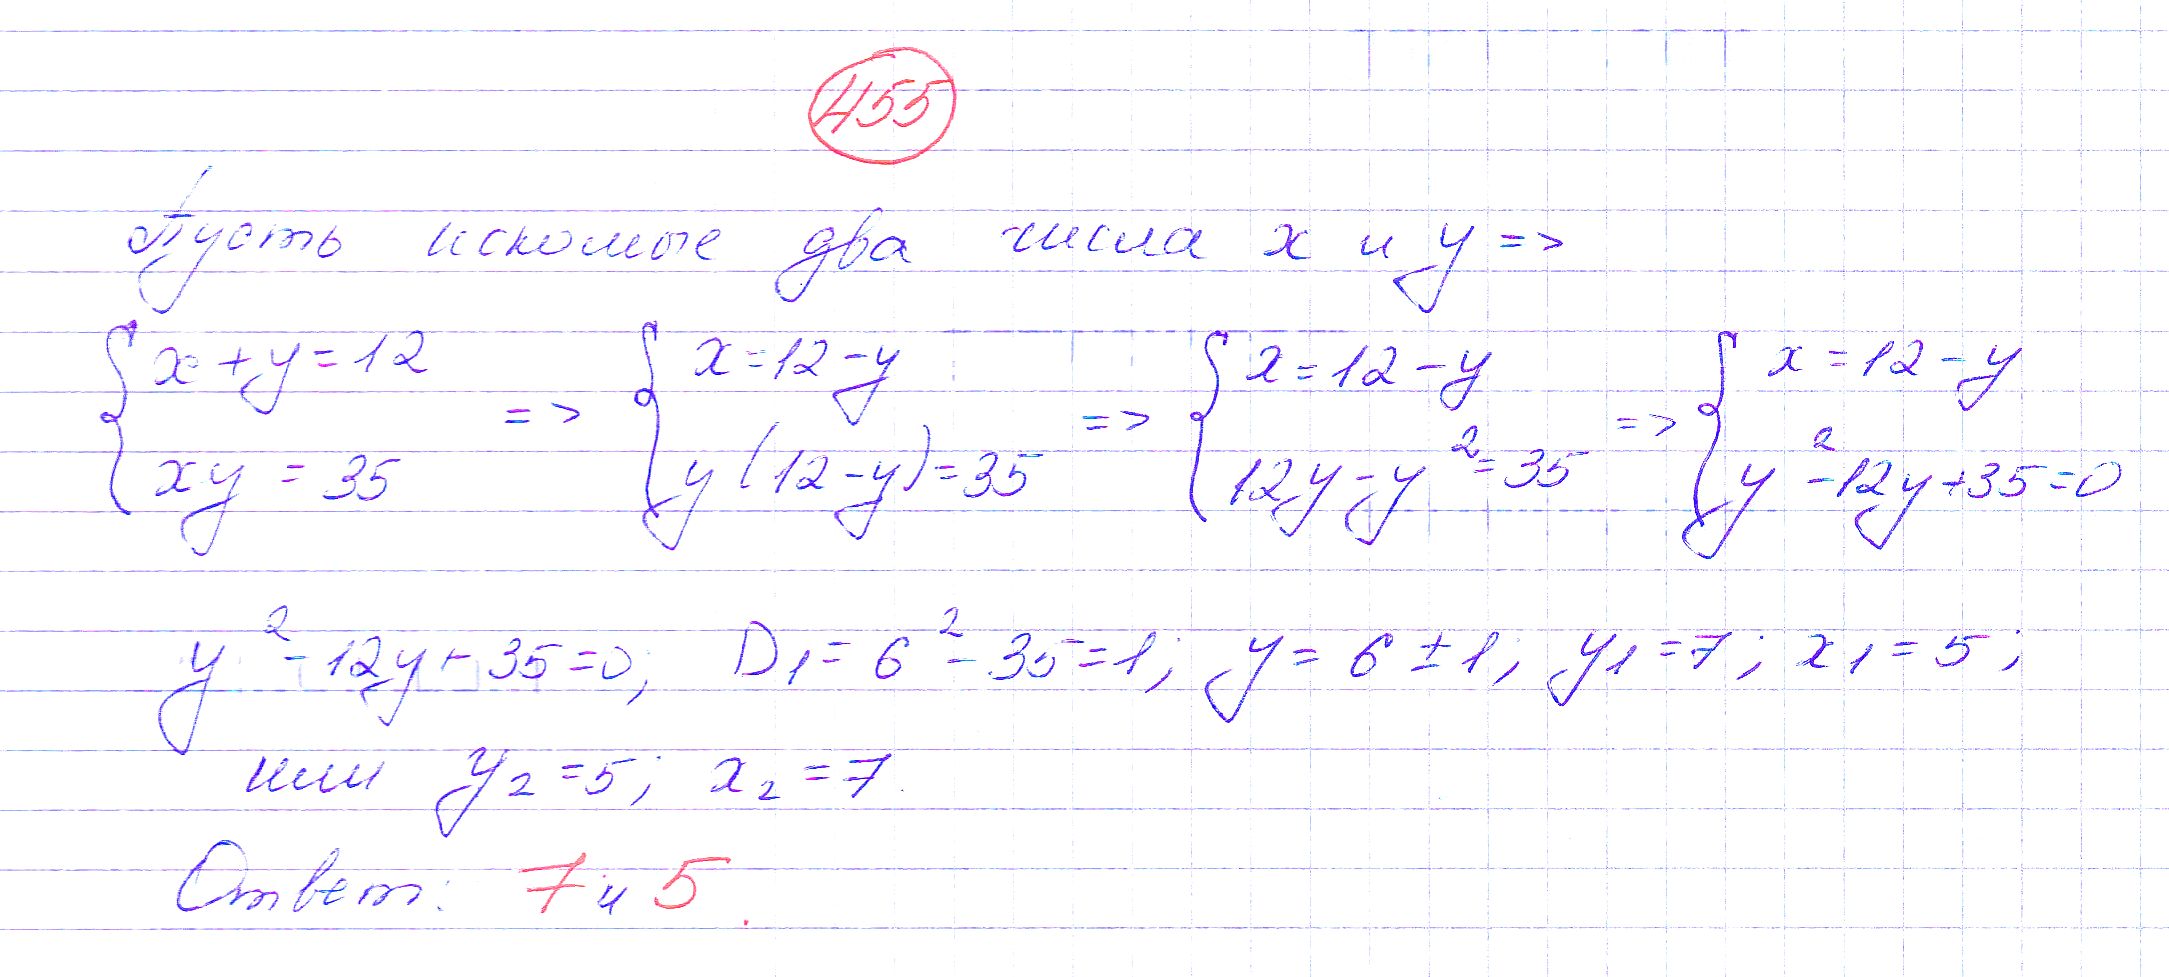 455
Пусть искомые два числа x и y =>
{ x + y = 12 => { x = 12 - y => { x = 12 - y => { x = 12 - y
xy = 35 y (12 - y) = 35 12y - y² = 35 y² - 12y + 35 = 0
y² - 12y + 35 = 0; D₁ = 6² - 35 = 1; y = 6 ± 1; y₁ = 7; x₁ = 5;
или y₂ = 5; x₂ = 7
Ответ: 7 и 5.